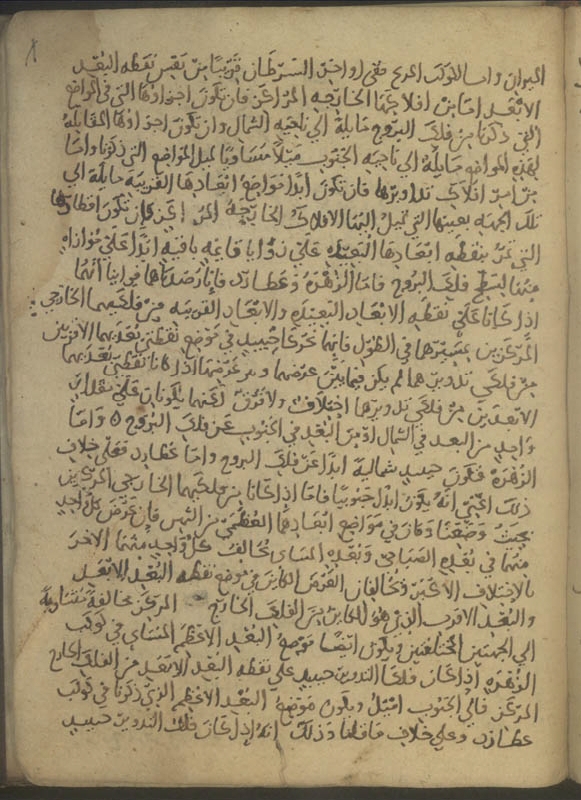 الميزان واما لكوكب المريخ ففي اواخر السرطان قريبا من نفس نقطه البعد
الابعد اما من افلاكها الخارجه المراكز فان تكون اجزاوها التي في المواضع
التي ذكرنا من فلك البروج مايلة الي ناحية الشمال وان تكون اجزاوها المقابلة
لهذه المواضع مايلة الي ناحية الجنوب ميلا متساويا لميل المواضع التي ذكرنا واما
من افلاك تداويرها فان تكون ابدا مواضع ابعادها القريبه مايلة الي
تلك الجهه بعينها التي تميل اليها الافلاك الخارجة المراكز وان تكون اقطارها
التي تمر بنقطه ابعادها علي زوايا قايمه باقيه ابدا علي موازاه
فلك البروج فاما الزهرة وعطارد فانا رصدناهما فراينا انهما
اذا كانا علي نقطه الابعاد البعيده والابعاد القريبه من فلكيهما الخارجي
المركزين بمسيرها في الطول فانهما حينيد في موضع نقطتي بعديهما الاقربين
من فلكي تدويرهما لم يكن فيما بين عرضهما وبين عرضهما اذا كانا نقطتي بعديهما
الابعدين من فلكي تدويرهما اختلاف ولا فرق لكنهما يكونان علي مقدار
واحد من البعد في الشمال او من البعد في الجنوب عن فلك البروج ٥ واما
الزهرة فتكون حينيد شمالية ابدا عن فلك البروج واما عطارد فعلي خلاف
ذلك اعني انه يكون ابدا جنوبيا فاما اذا كانا من فلكيهما الخارجي المركزين
بحيث وصفنا وكانا في مواضع ابعادهما العظمي من الشمس فان عرض كل واحد
منهما في بعده الصباحي وبعده المساي يخالف كل واحد منهما الاخر
بالاختلاف الاكثر ويخالفان العرض الكاين في موضع نقطه البعد الابعد
والبعد الاقرب الذي هو الكاين من الفلك الخارج المركز مخالفة متساوية
الي الجهتين المختلفتين ويكون ايضا موضع البعد الاعظم المساي في كوكب
الزهرة اذا كان فلك التدوير حينيد علي نقطه البعد الابعد من الفلك الخارج
المركز فالي الجنوب اميل ويكون موضع البعد الاعظم الذي ذكرنا في كوكب
عطارد وعلي خلاف ما قلنا وذلك انه اذا كان فلك التدوير حينيد